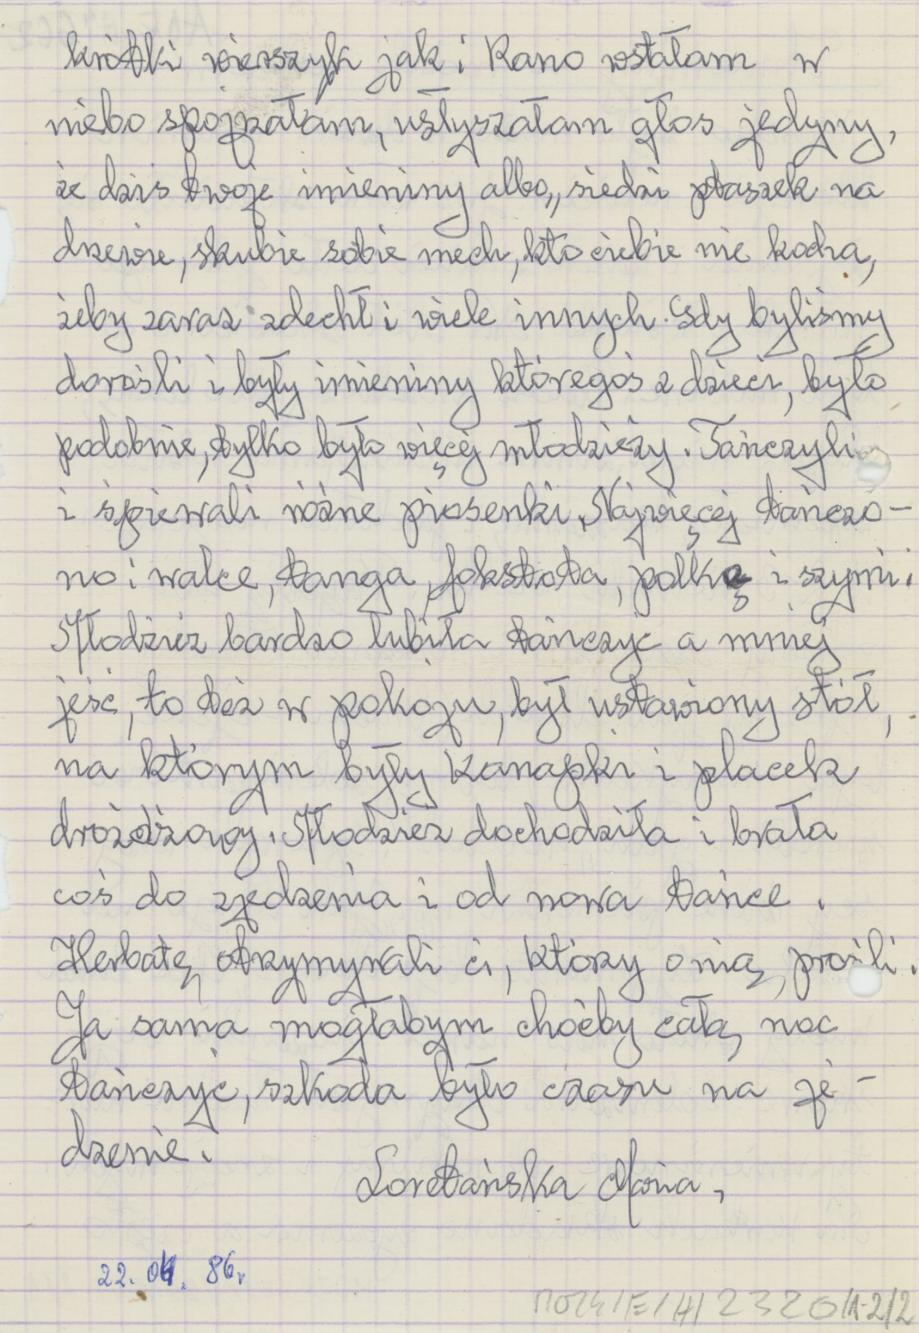 krótki wierszyk jak i Rano wstałam w
niebo spojrzałam, usłyszałam głos jedyny,
że dziś twoje imieniny albo „siedzi ptaszek na
drzewie, skubie sobie mech, kto ciebie nie kocha,
żeby zaraz zdechł i wiele innych. Gdy byliśmy
dorośli i były imieniny któregoś z dzieci, było
podobnie, tylko było więcej młodzieży. Tańczyli
i śpiewali różne piosenki. Najwięcej tańczo-
no i walce, tanga, fokstrota, polkę i szymi.
Młodzież bardzo lubiła tańczyć a mniej
jeść, to też w pokoju, był ustawiony stół,
na którym były kanapki i placek
drożdżowy. Młodzież dochodziła i brała
coś do zjedzenia i od nowa tańce.
Herbatę otrzymywali ci, którzy o nią prosili.
Ja sama mogłabym choćby całą noc
tańczyć, szkoda było czasu na je-
dzenie.
Loretańska Maria,
22. 04. 86r.
2320/1-2/2